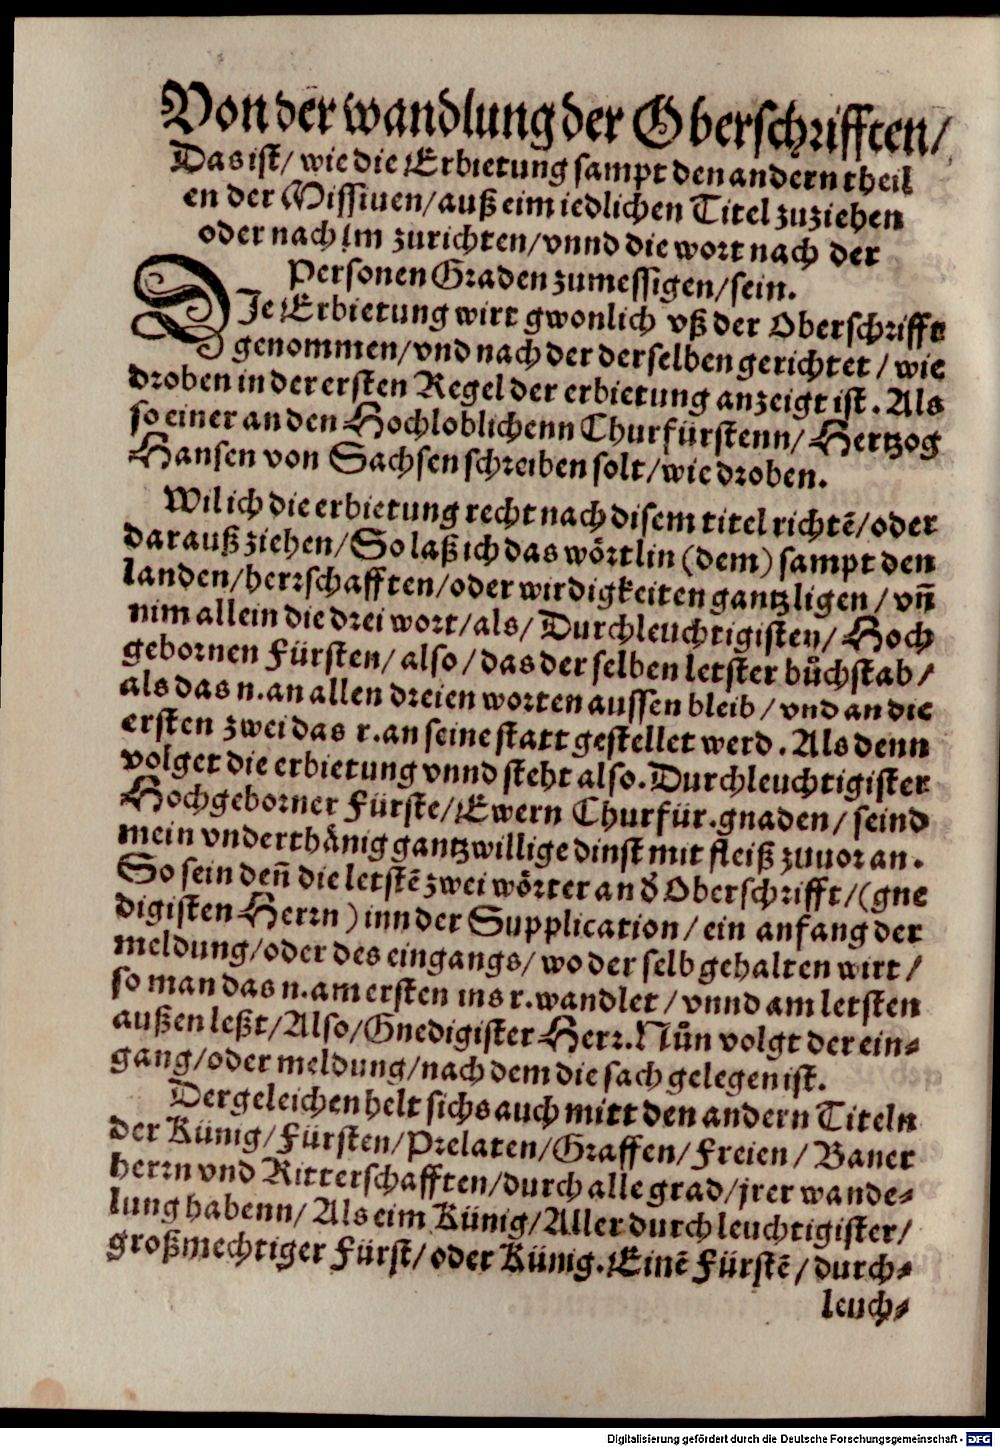 Von der wandlung der Oberschrifften/
Das ist/ wie die Erbietung sampt den andern theil
en der Missiuen/ auß eim iedlichen Titel zuziehen
oder nach im zurichten/ vnnd die wort nach der
Personen Graden zumessigen/ sein.
DJe Erbietung wirt gwonlich vß der Oberschrifft
genommen/ vnd nach der derselben gerichtet / wie
droben in der ersten Regel der erbietung anzeigt ist. Als
so einer an den Hochloblichenn Churfürstenn/ Hertzog
Hansen von Sachsen schreiben solt/ wie droben.
Wil ich die erbietung recht nach disem titel richtē/ oder
darauß ziehen/ So laß ich das wörtlin (dem) sampt den
landen/ herrschafften/ oder wirdigkeiten gantz ligen / vñ
nim allein die drei wort/ als/ Durchleuchtigisten/ Hoch
gebornen Fürsten/ also/ das der selben letster bůchstab/
als das n. an allen dreien worten aussen bleib/ vnd an die
ersten zwei das r. an seine statt gestellet werd. Als denn
volget die erbietung vnnd steht also. Durchleuchtigister
Hochgeborner Fürste/ Ewern Churfür. gnaden/ seind
mein vnderthänig gantzwillige dinst mit fleiß zuuor an.
So sein deñ die letstē zwei wörter an d̄ Oberschrifft/ (gne
digisten Herrn) inn der Supplication/ ein anfang der
meldung/ oder des eingangs/ wo der selb gehalten wirt/
so man das n. am ersten ins r. wandlet/ vnnd am letsten
außen leßt/ Also/ Gnedigister Herr. Nůn volgt der ein⸗
gang/ oder meldung/ nach dem die sach gelegen ist.
Dergeleichen helt sichs auch mitt den andern Titeln
der Künig/ Fürsten/ Prelaten/ Graffen/ Freien/ Baner
herrn vnd Ritterschafften/ durch alle grad/ jrer wande⸗
lung habenn/ Als eim Künig/ Aller durchleuchtigister/
großmechtiger Fürst/ oder Künig. Einē Fürstē/ durch⸗
leuch⸗
Digitalisierung gefördert durch die Deutsche Forschungsgemeinschaft - DFG